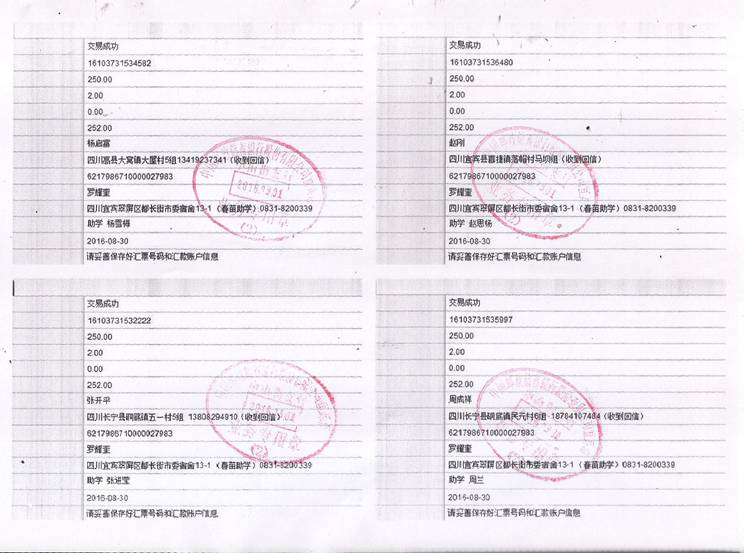 交易成功
16103731534582
250.00
2.00
0.00
252.00
杨启富
四川高县大窝镇大屋村5组13419237341（收到回信）
6217986710000027983
罗耀奎
四川宜宾翠屏区都长街市委宿舍13-1（春苗助学）0831-8200339
助学 杨雪梅
2016-08-30
请妥善保存好汇票号码和汇款账户信息
交易成功
16103731536480
250.00
2.00
0.00
252.00
赵刚
四川宜宾县喜捷镇落帽村马坝组（收到回信）
6217986710000027983
罗耀奎
四川宜宾翠屏区都长街市委宿舍13-1（春苗助学）0831-8200339
助学 赵思杨
2016-08-30
请妥善保存好汇票号码和汇款账户信息
交易成功
16103731532222
250.00
2.00
0.00
252.00
张开平
四川长宁县硐底镇五一村5组 13808294910（收到回信）
6217986710000027983
罗耀奎
四川宜宾翠屏区都长街市委宿舍13-1（春苗助学）0831-8200339
助学 张进莹
2016-08-30
请妥善保存好汇票号码和汇款账户信息
交易成功
16103731535997
250.00
2.00
0.00
252.00
周成祥
四川长宁县硐底镇民元村6组 18784107484（收到回信）
6217986710000027983
罗耀奎
四川宜宾翠屏区都长街市委宿舍13-1（春苗助学）0831-8200339
助学 周兰
2016-08-30
请妥善保存好汇票号码和汇款账户信息